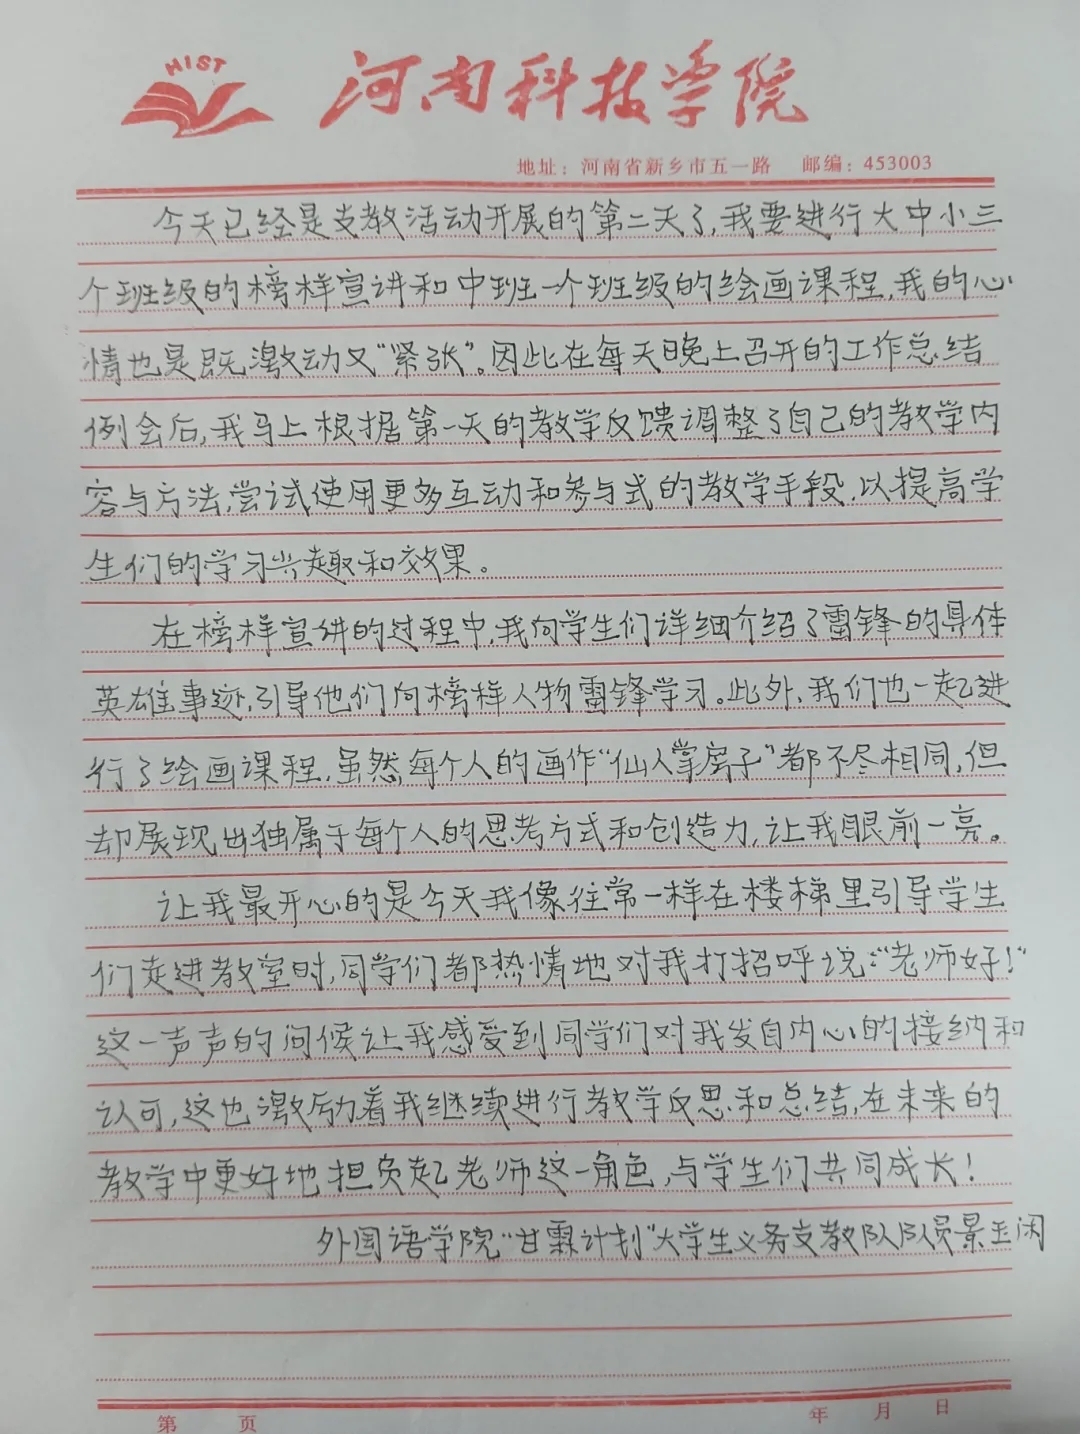 HIST
河南科技学院
地址：河南省新乡市五一路 邮编：453003
今天已经是支教活动开展的第二天了，我要进行大中小三
个班级的榜样宣讲和中班一个班级的绘画课程，我的心
情也是既激动又“紧张”。因此在每天晚上召开的工作总结
例会后，我马上根据第一天的教学反馈调整了自己的教学内
容与方法，尝试使用更多互动和参与式的教学手段，以提高学
生们的学习兴趣和效果。
在榜样宣讲的过程中，我向学生们详细介绍了雷锋的具体
英雄事迹，引导他们向榜样人物雷锋学习。此外，我们也一起进
行了绘画课程，虽然每个人的画作“仙人掌房子”都不尽相同，但
却展现出独属于每个人的思考方式和创造力，让我眼前一亮。
让我最开心的是今天我像往常一样在楼梯里引导学生
们走进教室时，同学们都热情地对我打招呼说：“老师好！”
这一声声的问候让我感受到同学们对我发自内心的接纳和
认可，这也激励着我继续进行教学反思和总结，在未来的
教学中更好地担负起老师这一角色，与学生们共同成长！
外国语学院“甘霖计划”大学生义务支教队队员景玉闲
第 页 年 月 日